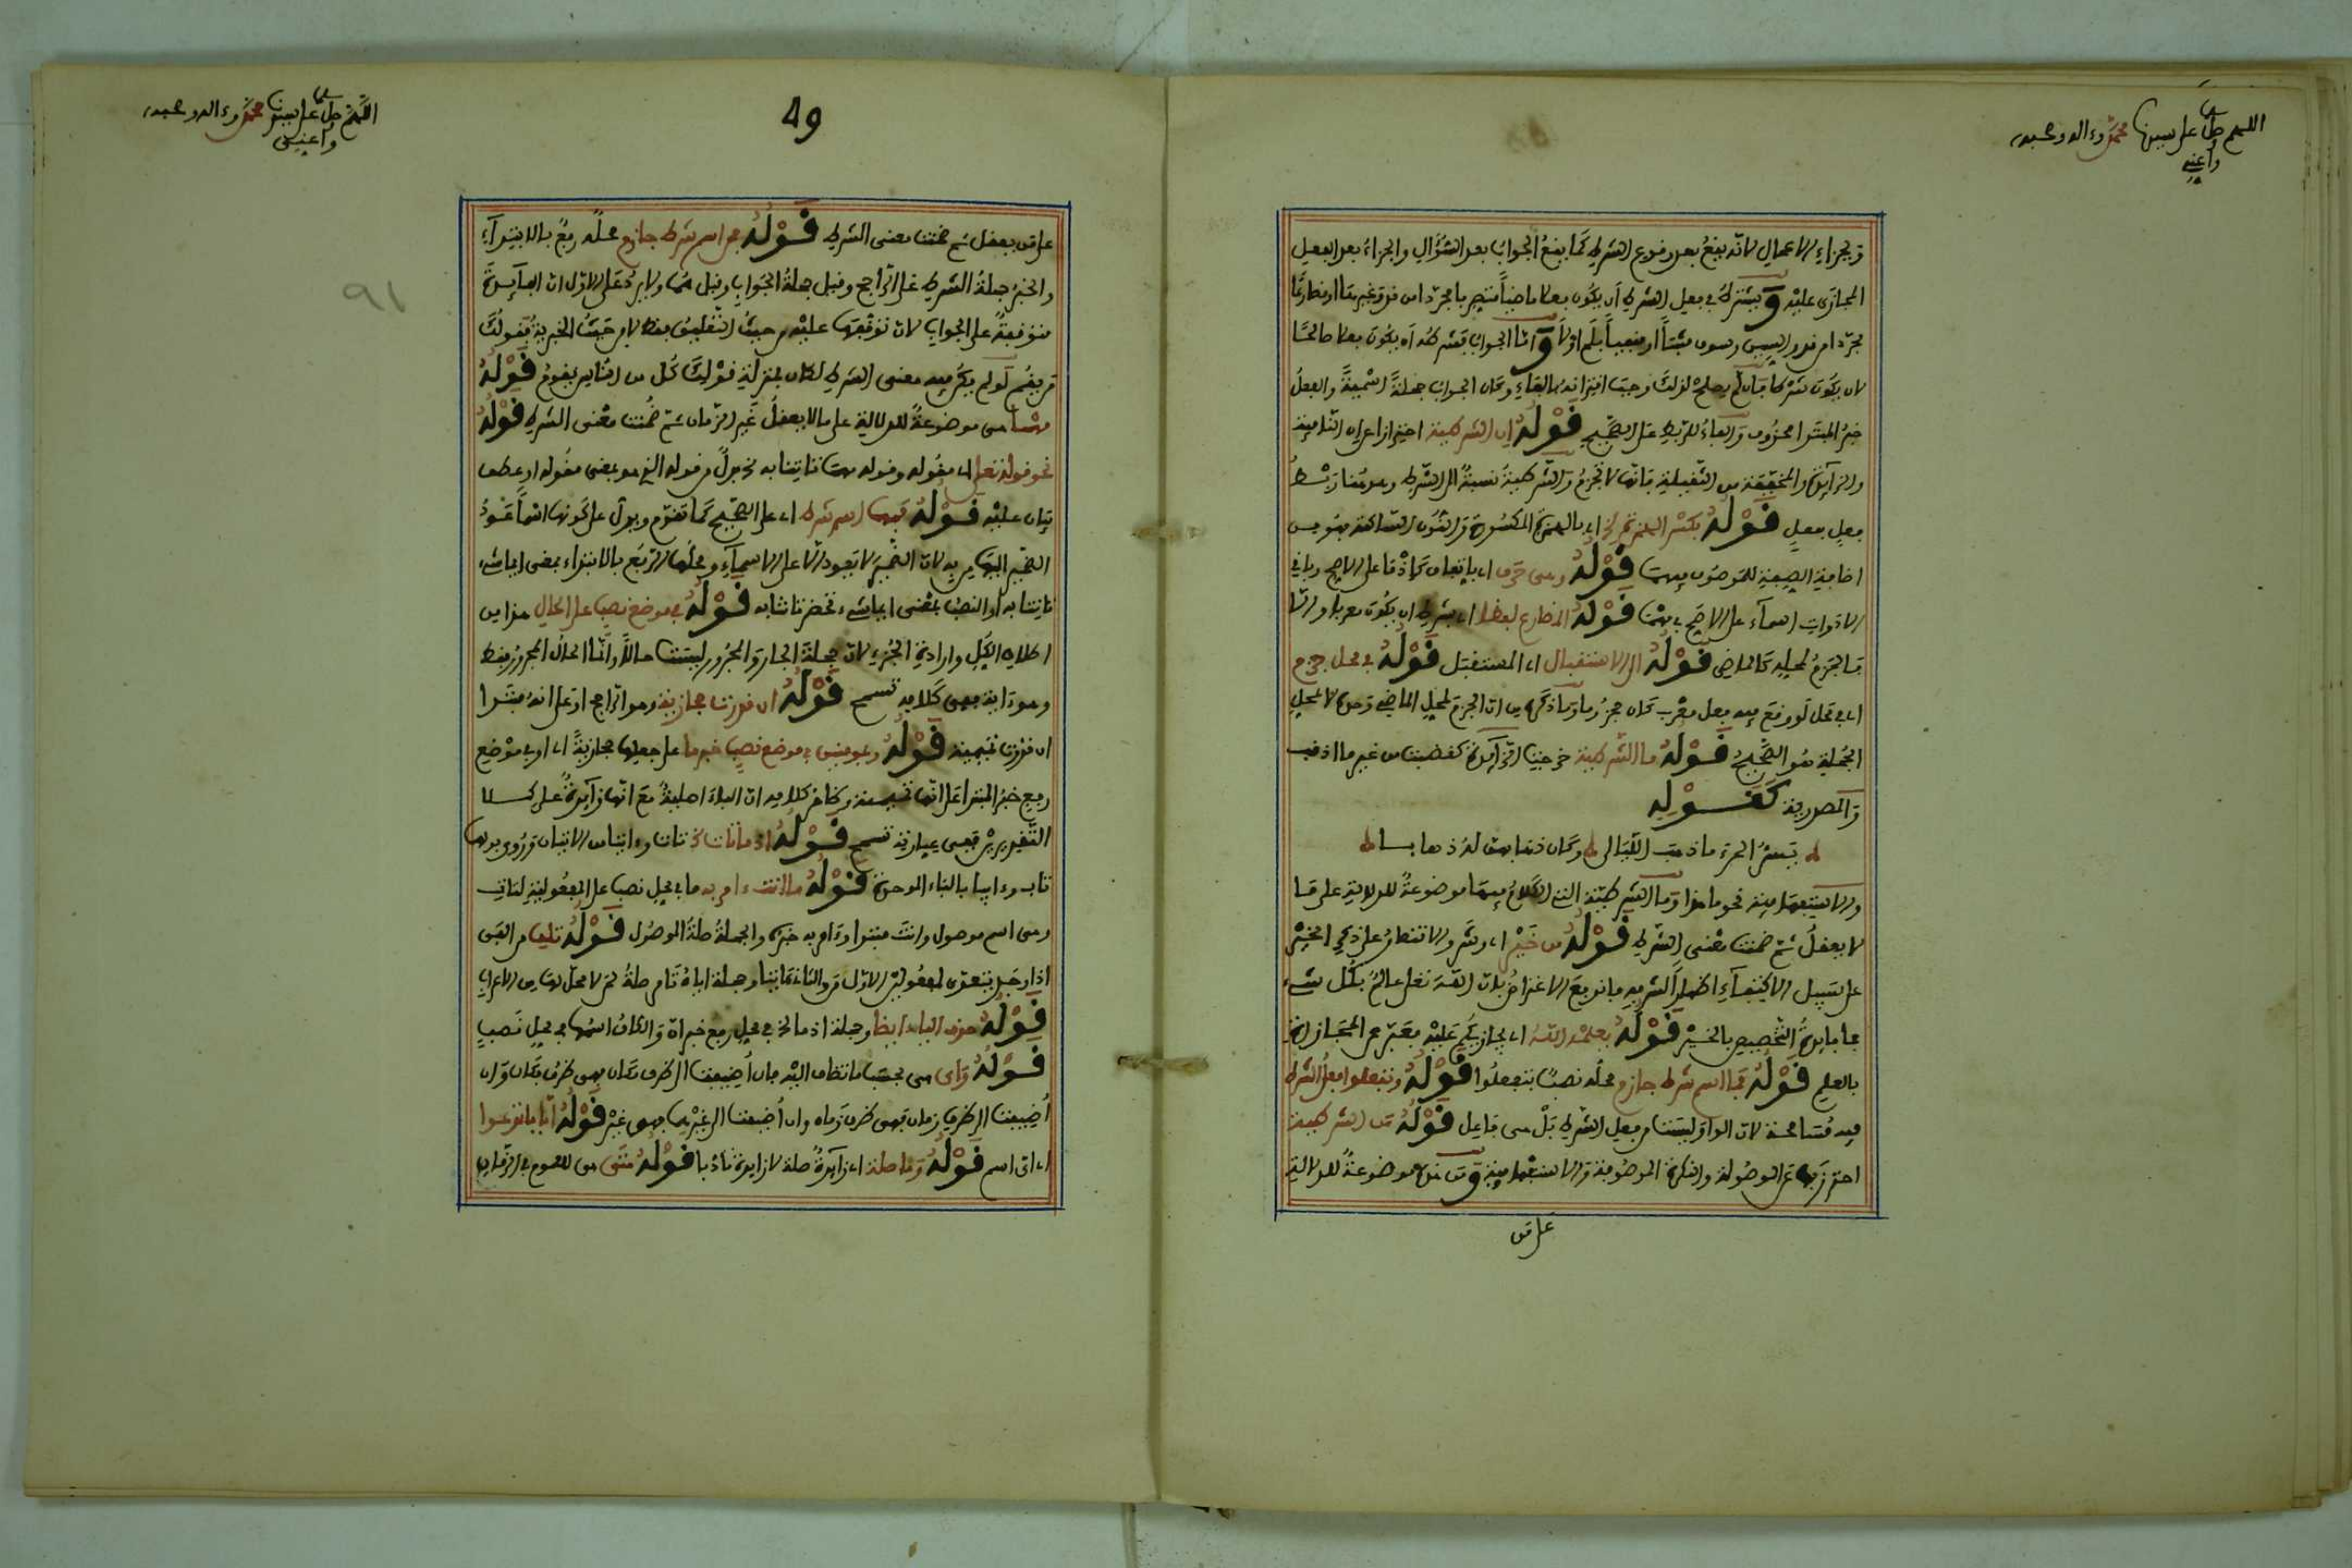 اللهم صل على سيدنا محمد وءاله وصحبه
وأعني
وبجزاء الأعمال لأنه يقع بعد وقوع الشرط كما يقع الجواب بعد السؤال والجزاء بعد الفعل
المجازى عليه ويشترط في فعل الشرط أن يكون فعلا ماضيا متصرفا مجردا من قد وغيرها أو مضارعا
مجردا من قد والسين وسوف مثبتا أو منفيا بلم أو لا وأما الجواب فشرطه أن يكون فعلا صالحا
لأن يكون شرطا فإن لم يصلح لذلك وجب اقترانه بالفاء وكان الجواب جملة اسمية والفعل
خبر المبتدا محذوف والفاء للربط على الصحيح قوله إن الشرطية احترازا عن إن النافية
والزائدة والمخففة من الثقيلة فإنها لا تجزم والشرطية نسبة إلى الشرط وهو هنا ربط
فعل بفعل قوله بكسر الهمزة إلخ أي بالهمزة المكسورة والنون الساكنة فهو من
إضافة الصفة للموصوف فيهما قوله وهي حرف أي باتفاق كإذما على الأصح وباقي
الأدوات أسماء على الأصح في مهما قوله المضارع لفظا أي بشرط أن يكون معربا وإلا
فالجزم لمحله كالماضي قوله إلى الاستقبال أي المستقبل قوله في محل جزم
أي في محل لو وقع فيه فعل معرب كان مجزوما وما ذكره من أن الجزم لمحل الماضي وحده لا لمحل
الجملة هو الصحيح قوله ما الشرطية خرجت الزائدة كغضبت من غير ما اذنب
والمصدرية كقوله
يسر المرء ما ذهب الليالي وكان ذهابهن له ذهابا
والاستفهامية نحو ما هذا وما الشرطية التي الكلام فيها موضوعة للدلالة على ما
لا يعقل ثم ضمنت معنى الشرط قوله من خير أي وشر والاقتصار على ذكر الخير
على سبيل الاكتفاء إظهارا لشرفه فاندفع الاعتراض بأن الله تعلى عالم بكل شيء
فما فائدة التخصيص بالخير قوله يعلمه الله أي يجازيكم عليه فعبر عن المجازاة
بالعلم قوله فما اسم شرط جازم محله نصب بتفعلوا قوله وتفعلوا فعل الشرط
فيه مسامحة لأن الواو ليست من فعل الشرط بل هي فاعل قوله من الشرطية
احترز به عن الموصولة والنكرة الموصوفة والاستفهامية ومن هذه موضوعة للدلالة
على من
49
اللهم صل على سيدنا محمد وءاله وصحبه
وأعني
91
على من يعقل ثم ضمنت معنى الشرط قوله من اسم شرط جازم محله رفع بالابتداء
والخبر جملة الشرط على الراجح وقيل جملة الجواب وقيل هما ولا يرد على الأول أن الفائدة
متوقفة على الجواب لأن توقفها عليه من حيث التعليق فقط لا من حيث الخبرية فقولك
من يقم لو لم يكن فيه معنى الشرط لكان بمنزلة قولك كل من الناس يقوم قوله
مهما هي موضوعة للدلالة على ما لا يعقل غير الزمان ثم ضمنت معنى الشرط قوله
نحو قوله تعلى أي مقوله وقوله مهما تاتنا به إلخ بدل من قوله الذي هو بمعنى مقوله أو عطف
بيان عليه قوله فمهما اسم شرط أي على الصحيح كما تقدم ويدل على كونها اسما عود
الضمير إليها من به لأن الضمير لا يعود إلا على الأسماء ومحلها الرفع بالابتداء بمعنى أيما شيء
تاتنا به أو النصب بمعنى أيما شيء تحضرنا تاتنا به قوله في موضع نصب على الحال هذا من
إطلاق الكل وإرادة الجزء لأن جملة الجار والمجرور ليست حالا وإنما الحال المجرور فقط
وهو ءاية ففي كلامه تسمح قوله إن قدرت حجازية وهو الراجح أو على أنه مبتدا
إن قدرت تميمية قوله وبمومنين في موضع نصب خبر ما على جعلها حجازية أي أو في موضع
رفع خبر المبتدا على أنها تميمية وظاهر كلامه أن الباء أصلية مع أنها زائدة على كلا
التقديرين ففي عبارته تسمح قوله إذما تات إلخ تات وءاتيا من الإتيان وروي بدلها
تاب وءابيا بالباء الموحدة قوله ما أنت ءامر به ما في محل نصب على المفعولية لتات
وهي اسم موصول وأنت مبتدا وءامر به خبره والجملة صلة الموصول قوله تلف من ألفى
إذا وجد يتعدى لمفعولين الأول من والثاني ءاتيا وجملة إياه تامر صلة من لا محل لها من الإعراب
قوله حذف الياء أيضا وجملة إذما إلخ في محل رفع خبر إن والكاف اسمها في محل نصب
قوله وأي هي بحسب ما تضاف إليه فإن أضيفت إلى ظرف مكان فهي ظرف مكان وإن
أضيفت إلى ظرف زمان فهي ظرف زمان وإن أضيفت إلى غيرهما فهي غير قوله أيا ما تدعوا
أي أي اسم قوله وما صلة أي زائدة صلة لا زايدة تأدبا قوله متى هي للعموم في الزمان